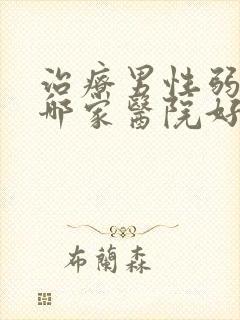 治療男性弱
哪家醫院好
布蘭森